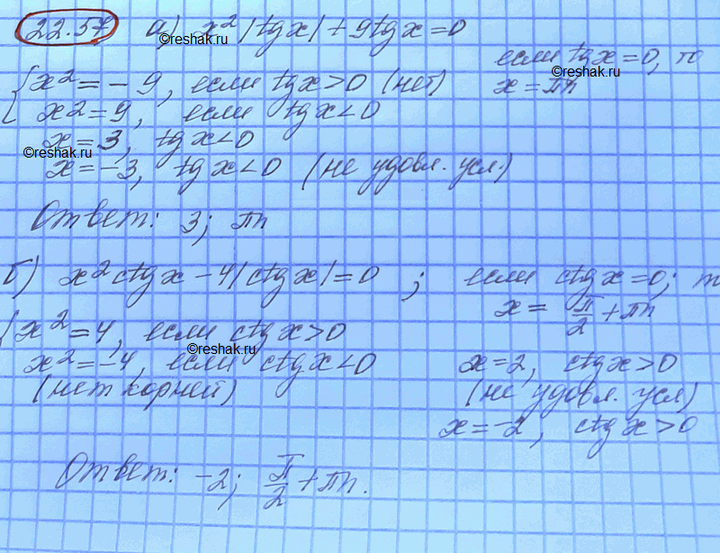 22.57 а) x²|tgx| + 9tgx = 0
©reshak.ru
если tgx = 0, то
x = πn
©reshak.ru
{ x² = -9, если tgx > 0 (нет)
x² = 9, если tgx < 0
x = 3, tgx < 0
©reshak.ru
x = -3, tgx < 0 (не удовл. усл.)
Ответ: 3; πn
б) x² ctgx - 4|ctgx| = 0 ; если ctgx = 0; т
x = π/2 + πn
{ x² = 4, если ctgx > 0
©reshak.ru
x² = -4, если ctgx < 0
(нет корней)
x = 2, ctgx > 0
(не удовл. усл)
x = -2, ctgx > 0
Ответ: -2; π/2 + πn.